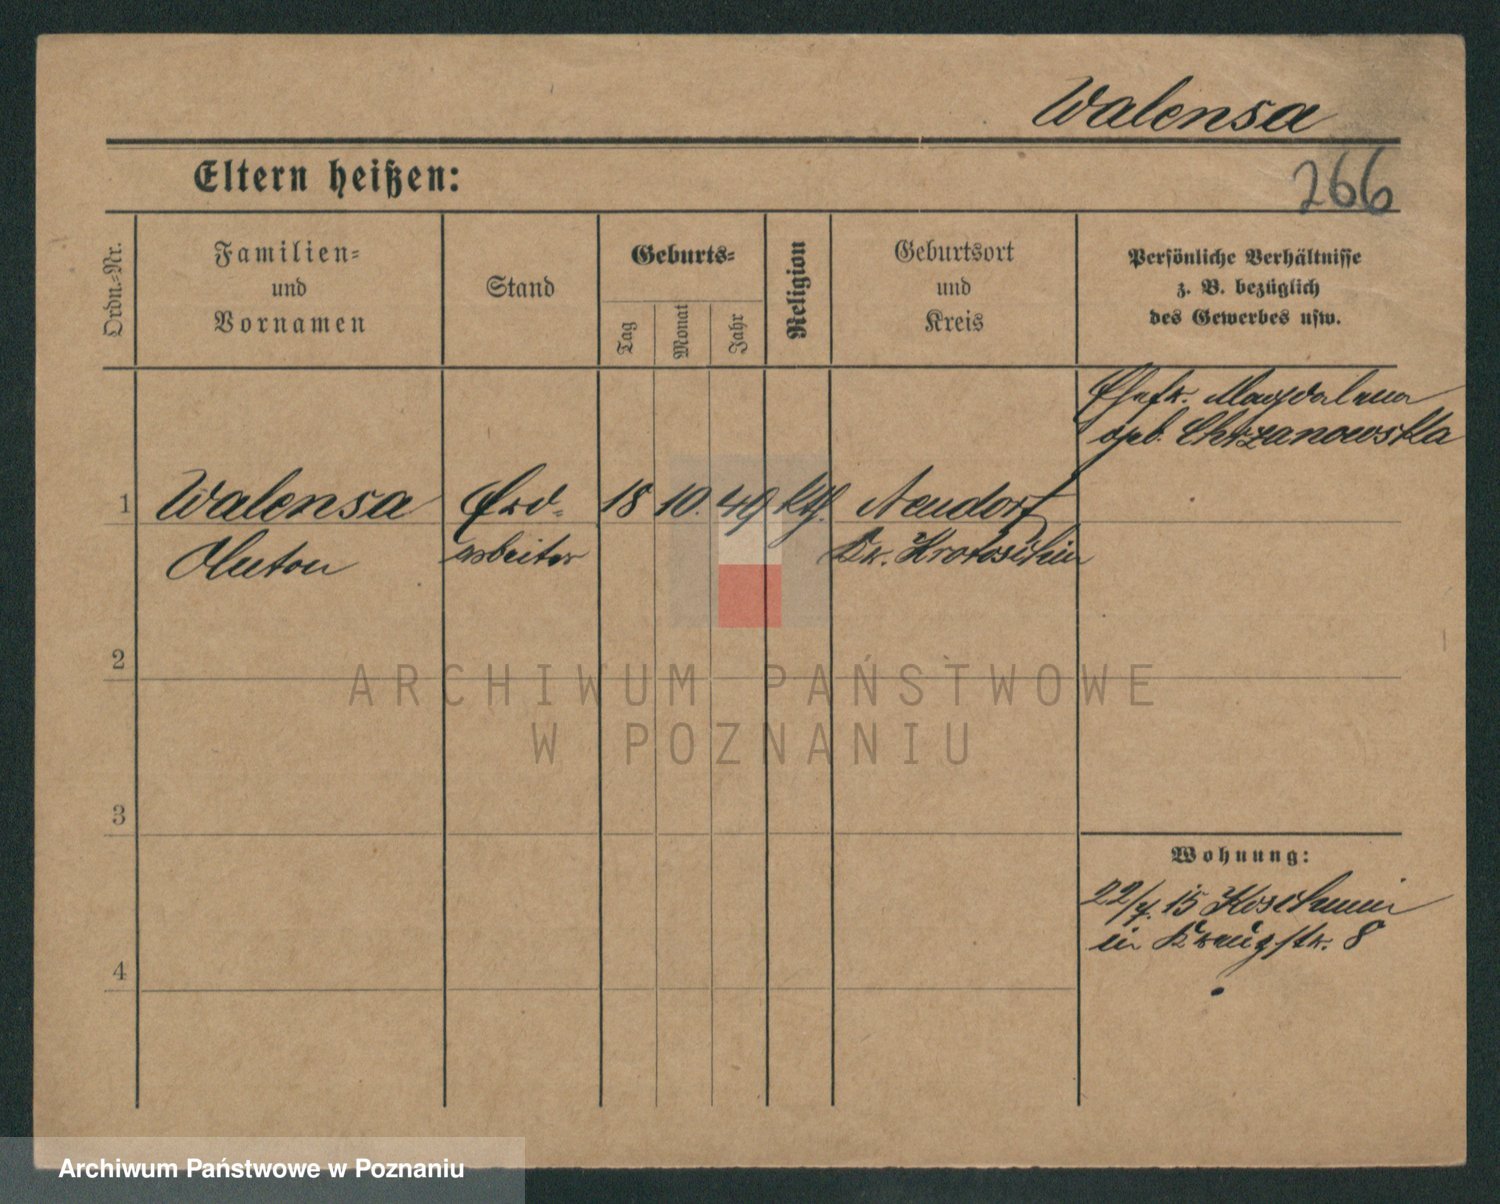 Walensa
Eltern heißen:
266
Ordn.-Nr.
Familien-
und
Vornamen
Stand
Geburts-
Tag
Monat
Jahr
Religion
Geburtsort
und
Kreis
Persönliche Verhältnisse
z. B. bezüglich
des Gewerbes usw.
Ehefr. Magdalena
geb. Chrzanowska
1 Walensa Erd- 18 10. 49 kth. Neudorf
Anton arbeiter Kr. Krotoschin
2
ARCHIWUM PAŃSTWOWE
W POZNANIU
3
Wohnung:
22/4. 15 Koschmin
in 8
4
Archiwum Państwowe w Poznaniu